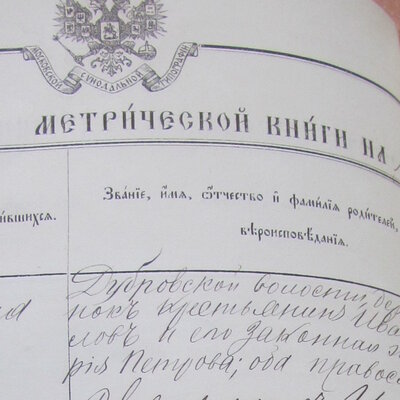 МОСКОВСКОЙ СѴНОДАЛЬНОЙ ТИПОГРАФІИ
МЕТРИ́ЧЕСКОЙ КНИ́ГИ НА
ившихся.
Зва́ніе, и́мя, ѻ҆́тчество и҆ фами́лія роди́телей,
вѣроисповѣ́данія.
Дубровской волости, де
нокъ крестьянинъ Ива
ловъ и его законная ж
рія Петрова; оба правос